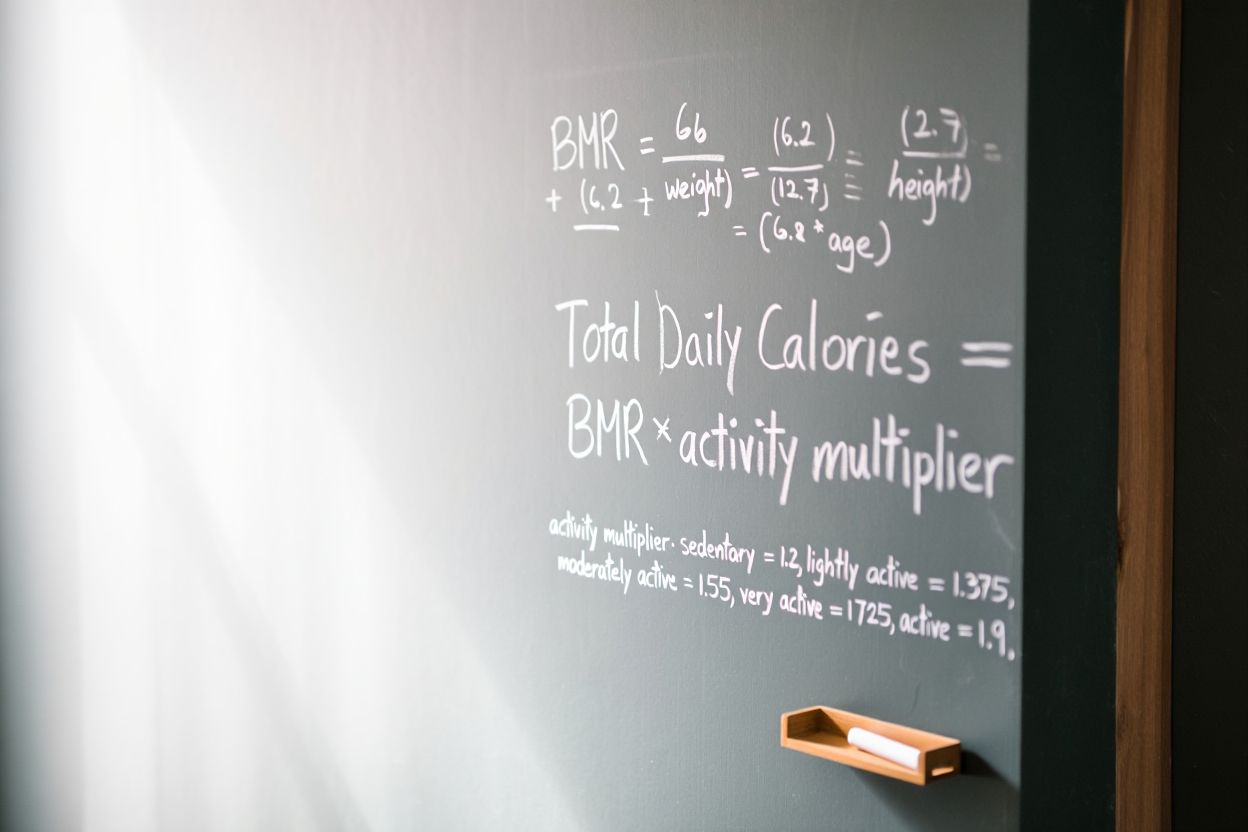 BMR = 66 = (6.2) = (2.7) =
+ (6.2 + weight) (12.7) = height)
= (6.8 * age)
Total Daily Calories =
BMR * activity multiplier
activity multiplier. sedentary = 1.2, lightly active = 1.375,
moderately active = 1.55, very active = 1725, active = 1.9.